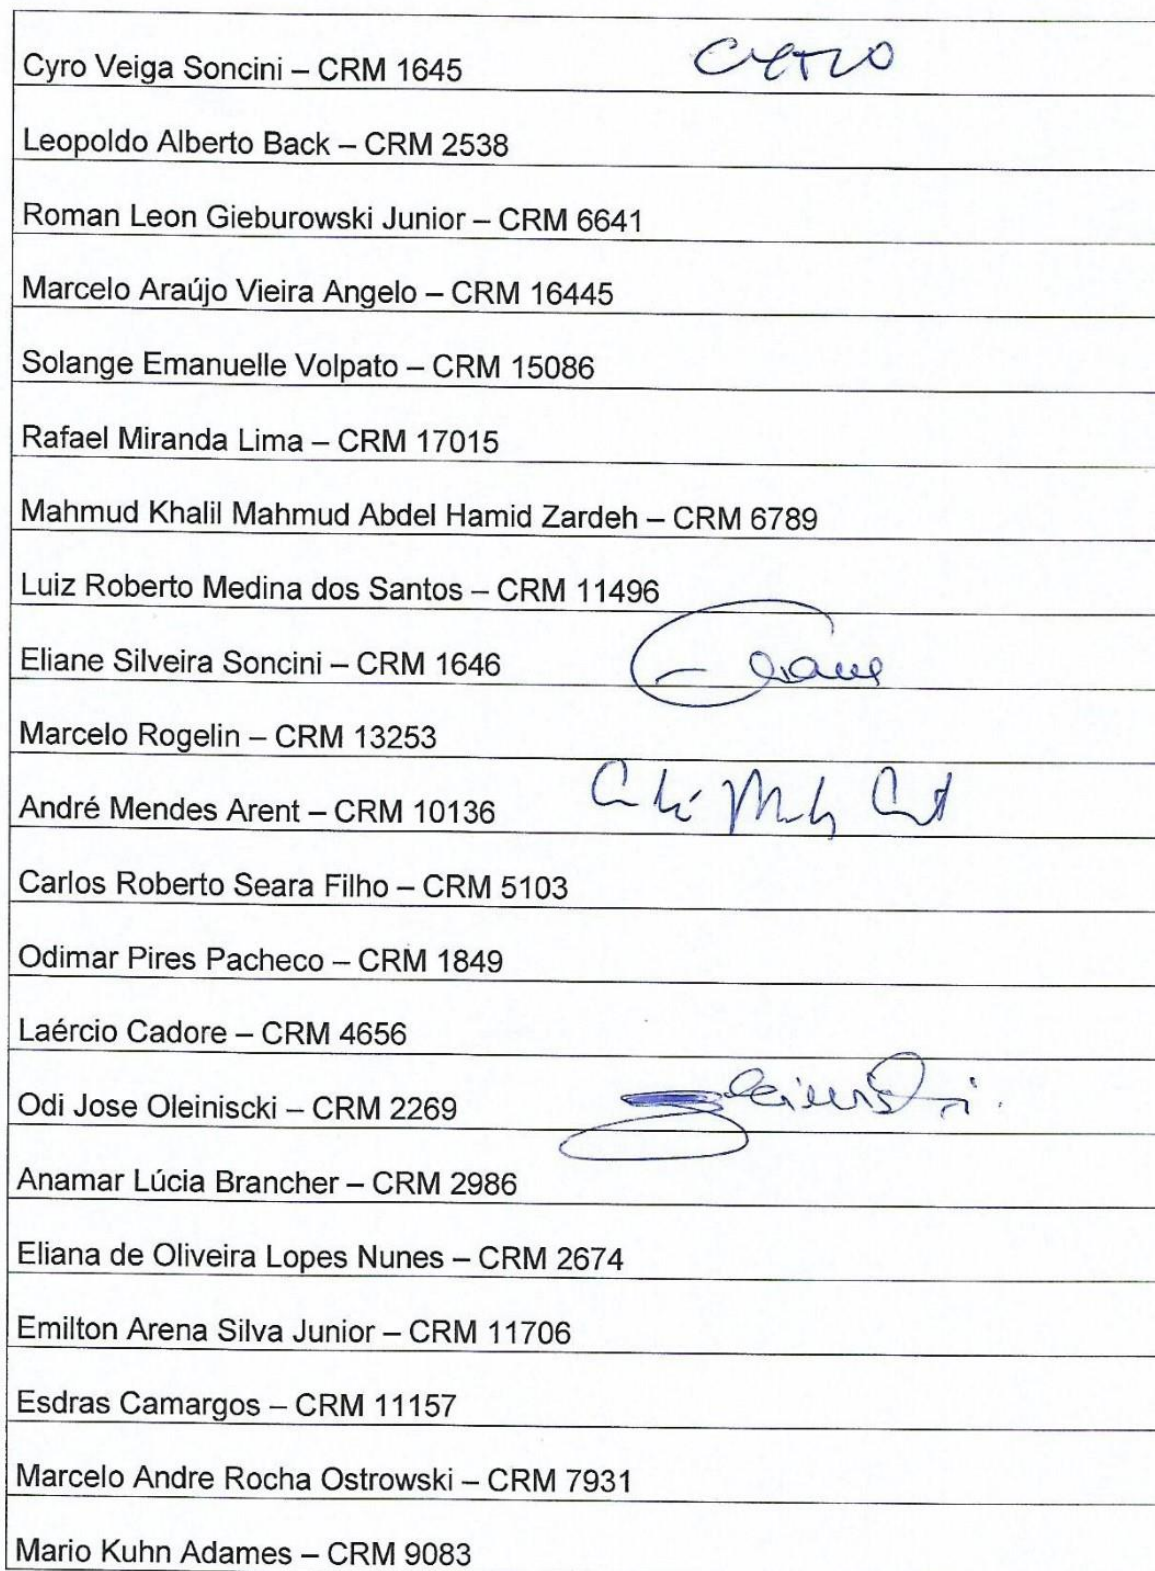 Cyro Veiga Soncini – CRM 1645 Cyro
Leopoldo Alberto Back – CRM 2538
Roman Leon Gieburowski Junior – CRM 6641
Marcelo Araújo Vieira Angelo – CRM 16445
Solange Emanuelle Volpato – CRM 15086
Rafael Miranda Lima – CRM 17015
Mahmud Khalil Mahmud Abdel Hamid Zardeh – CRM 6789
Luiz Roberto Medina dos Santos – CRM 11496
Eliane Silveira Soncini – CRM 1646 Eliane
Marcelo Rogelin – CRM 13253
André Mendes Arent – CRM 10136
Carlos Roberto Seara Filho – CRM 5103
Odimar Pires Pacheco – CRM 1849
Laércio Cadore – CRM 4656
Odi Jose Oleiniscki – CRM 2269
Anamar Lúcia Brancher – CRM 2986
Eliana de Oliveira Lopes Nunes – CRM 2674
Emilton Arena Silva Junior – CRM 11706
Esdras Camargos – CRM 11157
Marcelo Andre Rocha Ostrowski – CRM 7931
Mario Kuhn Adames – CRM 9083